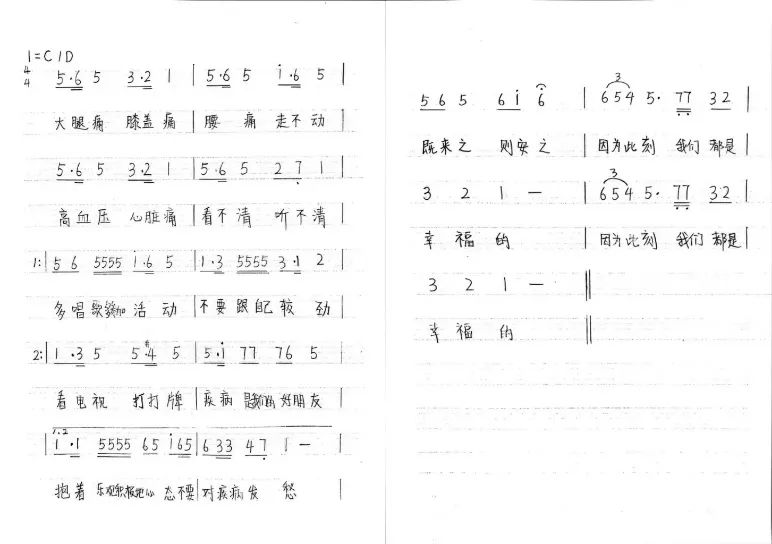 1=C/D
4/4 5·6 5 3·2 1 | 5·6 5 i·6 5 |
大腿痛 膝盖痛 | 腰 痛 走不动
5·6 5 3·2 1 | 5·6 5 2 7 1 |
高血压 心脏痛 | 看不清 听不清 |
1: 5 6 5555 i·6 5 | 1·3 5555 3·1 2 |
多唱 活动 | 不要跟自己较劲 |
2: 1·3 5 5 #4 5 | 5·i 77 76 5 |
看电视 打打牌 | 疾病 好朋友 |
1.2
| i·i 5555 65 i65 | 633 47 1 — |
抱着 乐观积极地心态不要 | 对疾病发 愁 |
56 5 6i 6 | 3 654 5· 77 32 |
既来之 则安之 | 因为此刻 我们都是 |
3 2 1 — | 3 654 5· 77 32 |
幸福的 | 因为此刻 我们都是 |
3 2 1 — ‖
幸福的 ‖